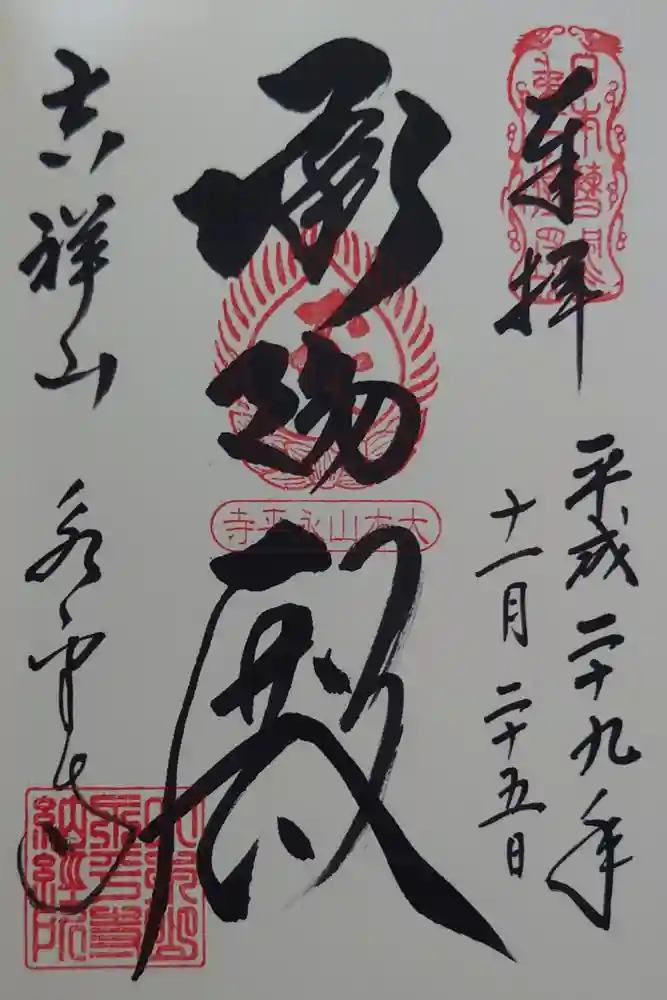 奉拝
平成二十九年
十一月二十五日
承陽殿
大本山永平寺
吉祥山
永平寺
納経所